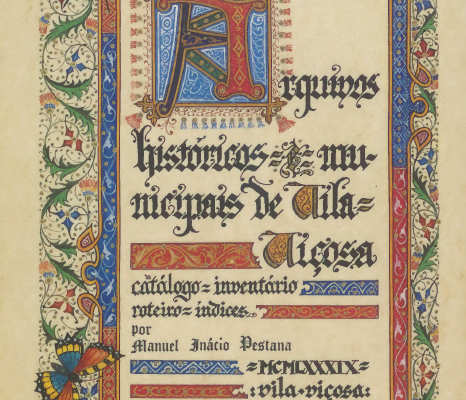 Arquivos
históricos=e=mu-
nicipais de Vila=
Viçosa
catálogo=inventário
roteiro=indices..
por
Manuel Inácio Pestana
=MCMLXXXIX=
:vila viçosa: